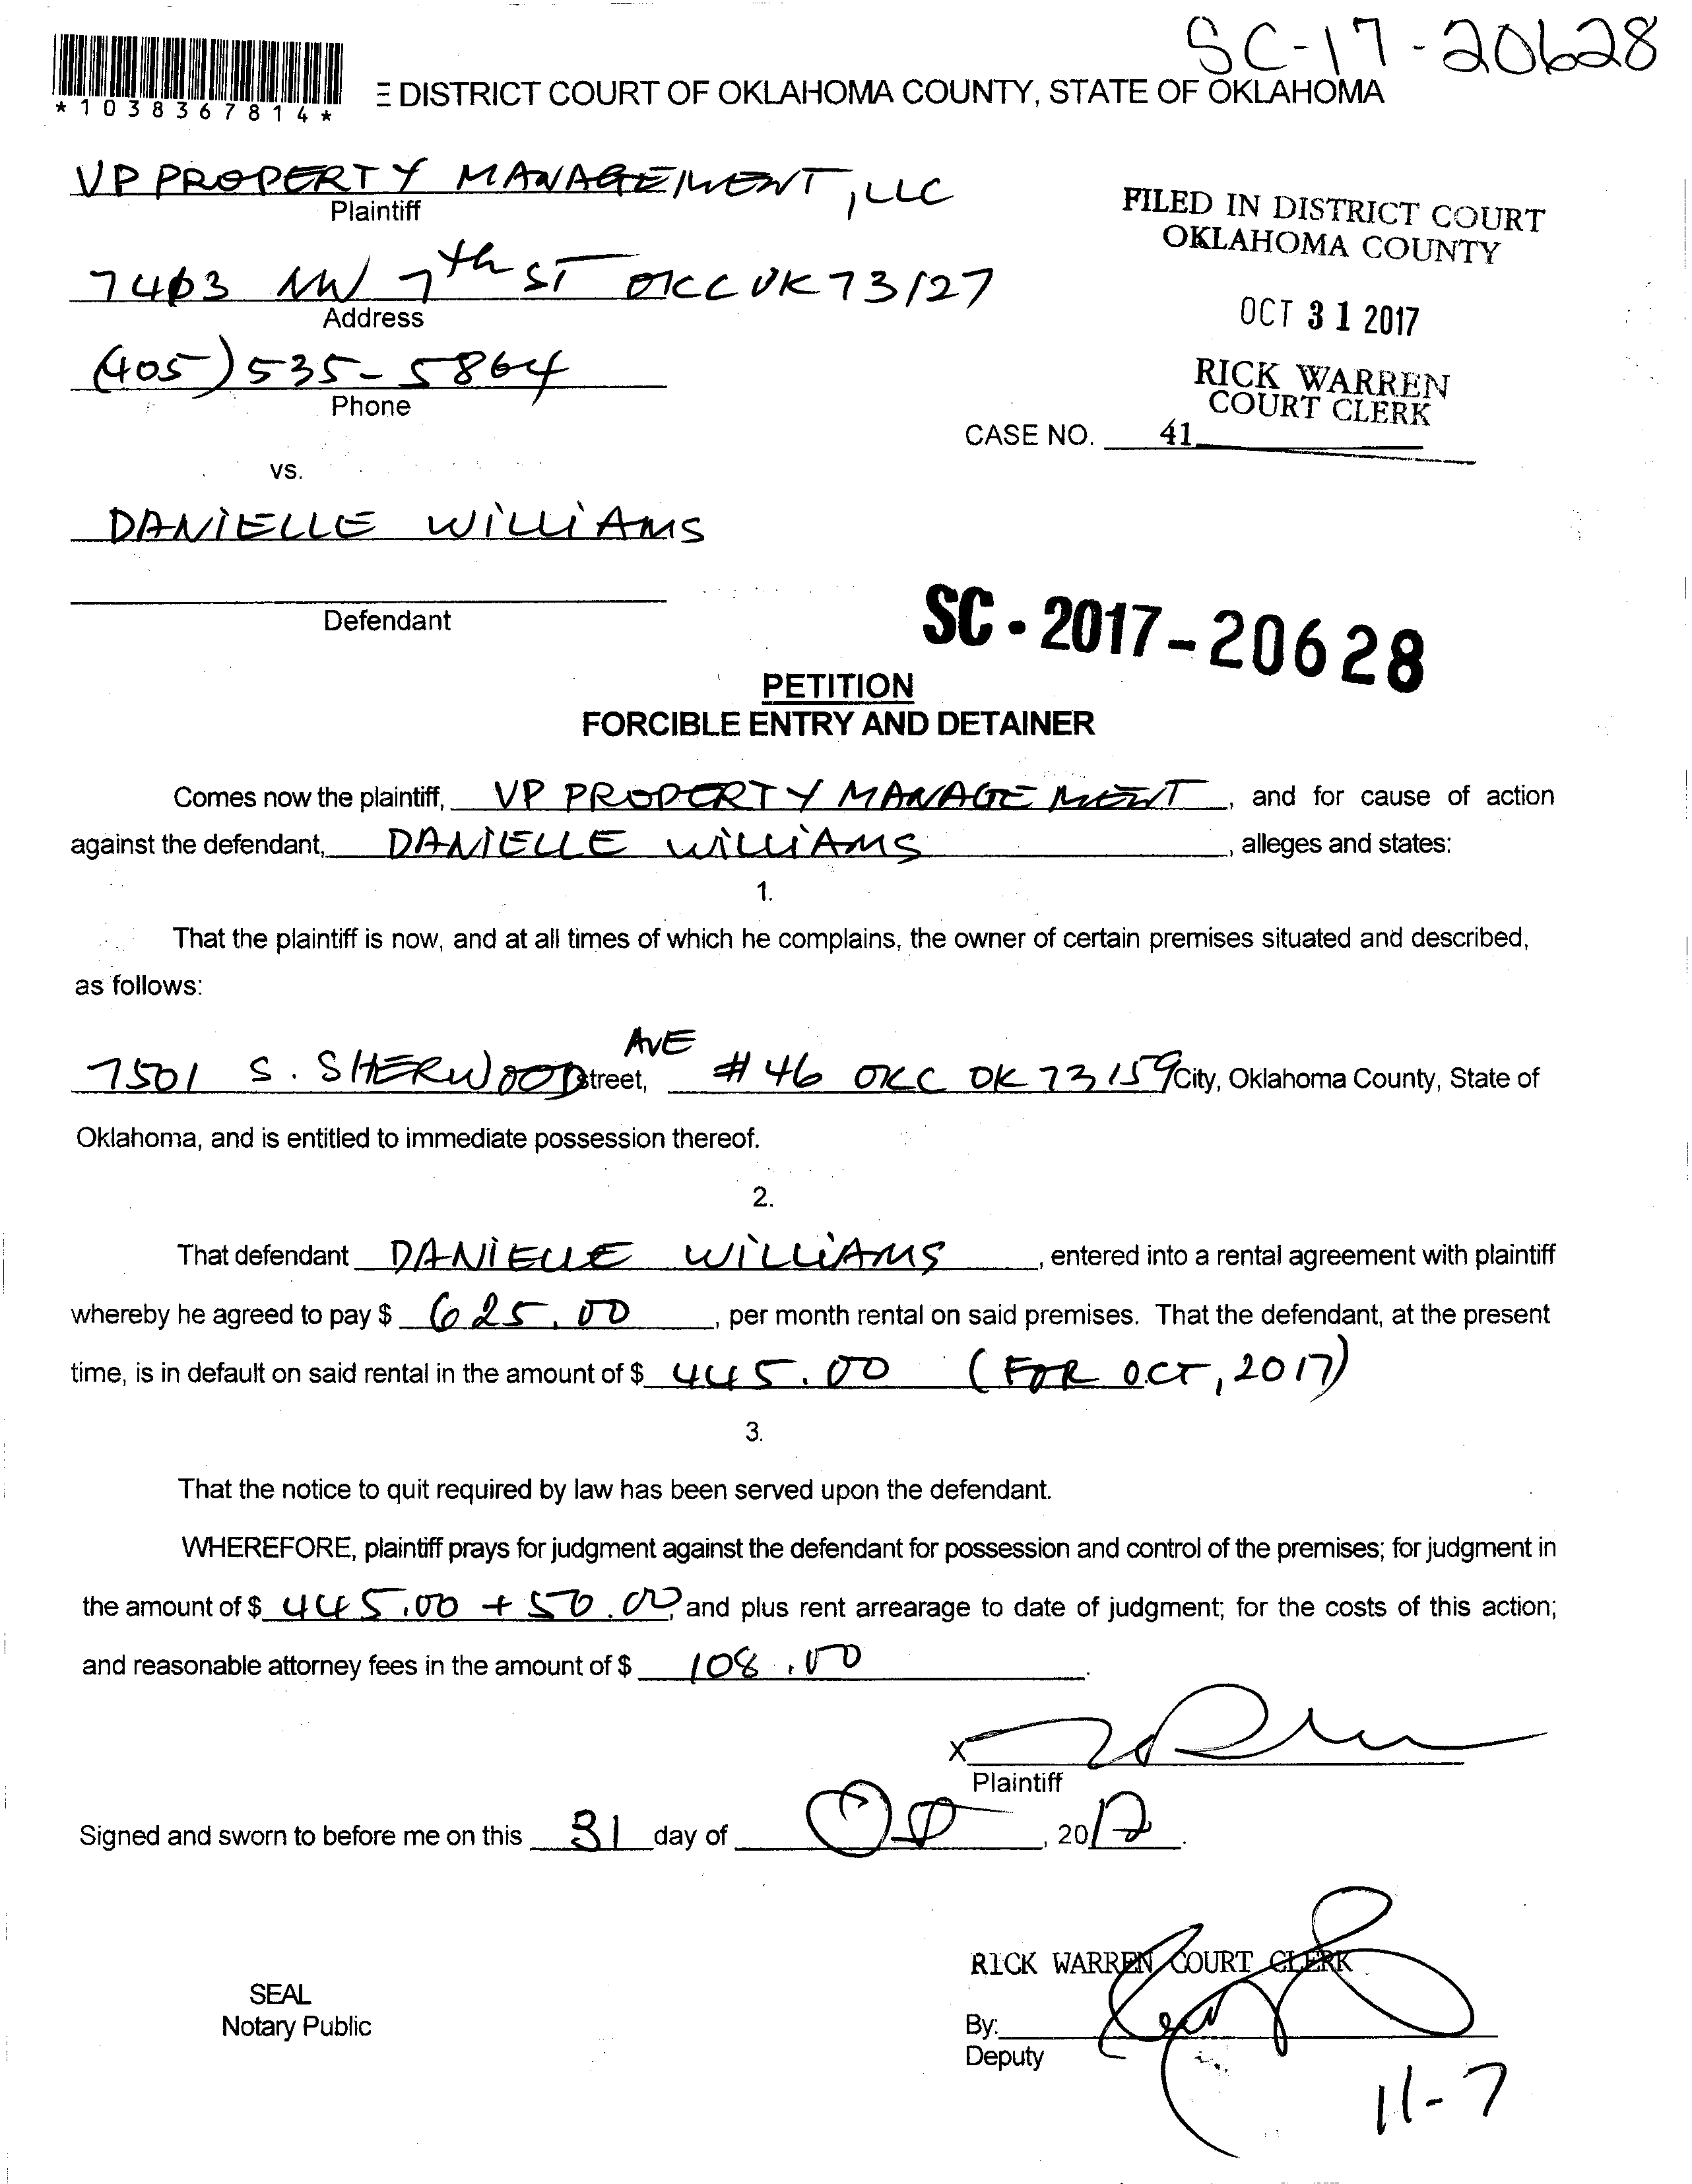 SC-17-20628
*1038367814*
E DISTRICT COURT OF OKLAHOMA COUNTY, STATE OF OKLAHOMA
VP PROPERTY MANAGEMENT, LLC
Plaintiff
FILED IN DISTRICT COURT
OKLAHOMA COUNTY
7403 NW 7th ST OKC OK 73127
Address
OCT 31 2017
(405) 535-5864
Phone
RICK WARREN
COURT CLERK
CASE NO. 41
vs.
DANIELLE WILLIAMS
Defendant
SC-2017-20628
PETITION
FORCIBLE ENTRY AND DETAINER
Comes now the plaintiff, VP PROPERTY MANAGEMENT, and for cause of action
against the defendant, DANIELLE WILLIAMS, alleges and states:
1.
That the plaintiff is now, and at all times of which he complains, the owner of certain premises situated and described,
as follows:
7501 S. SHERWOOD AVE street, #46 OKC OK 73159 City, Oklahoma County, State of
Oklahoma, and is entitled to immediate possession thereof.
2.
That defendant DANIELLE WILLIAMS, entered into a rental agreement with plaintiff
whereby he agreed to pay $ 625.00, per month rental on said premises. That the defendant, at the present
time, is in default on said rental in the amount of $ 445.00 (FOR OCT, 2017)
3.
That the notice to quit required by law has been served upon the defendant.
WHEREFORE, plaintiff prays for judgment against the defendant for possession and control of the premises; for judgment in
the amount of $ 445.00 + 50.00, and plus rent arrearage to date of judgment; for the costs of this action;
and reasonable attorney fees in the amount of $ 108.00.
X
Plaintiff
Signed and sworn to before me on this 31 day of Oct, 2017.
RICK WARREN COURT CLERK
SEAL
Notary Public
By:
Deputy
11-7